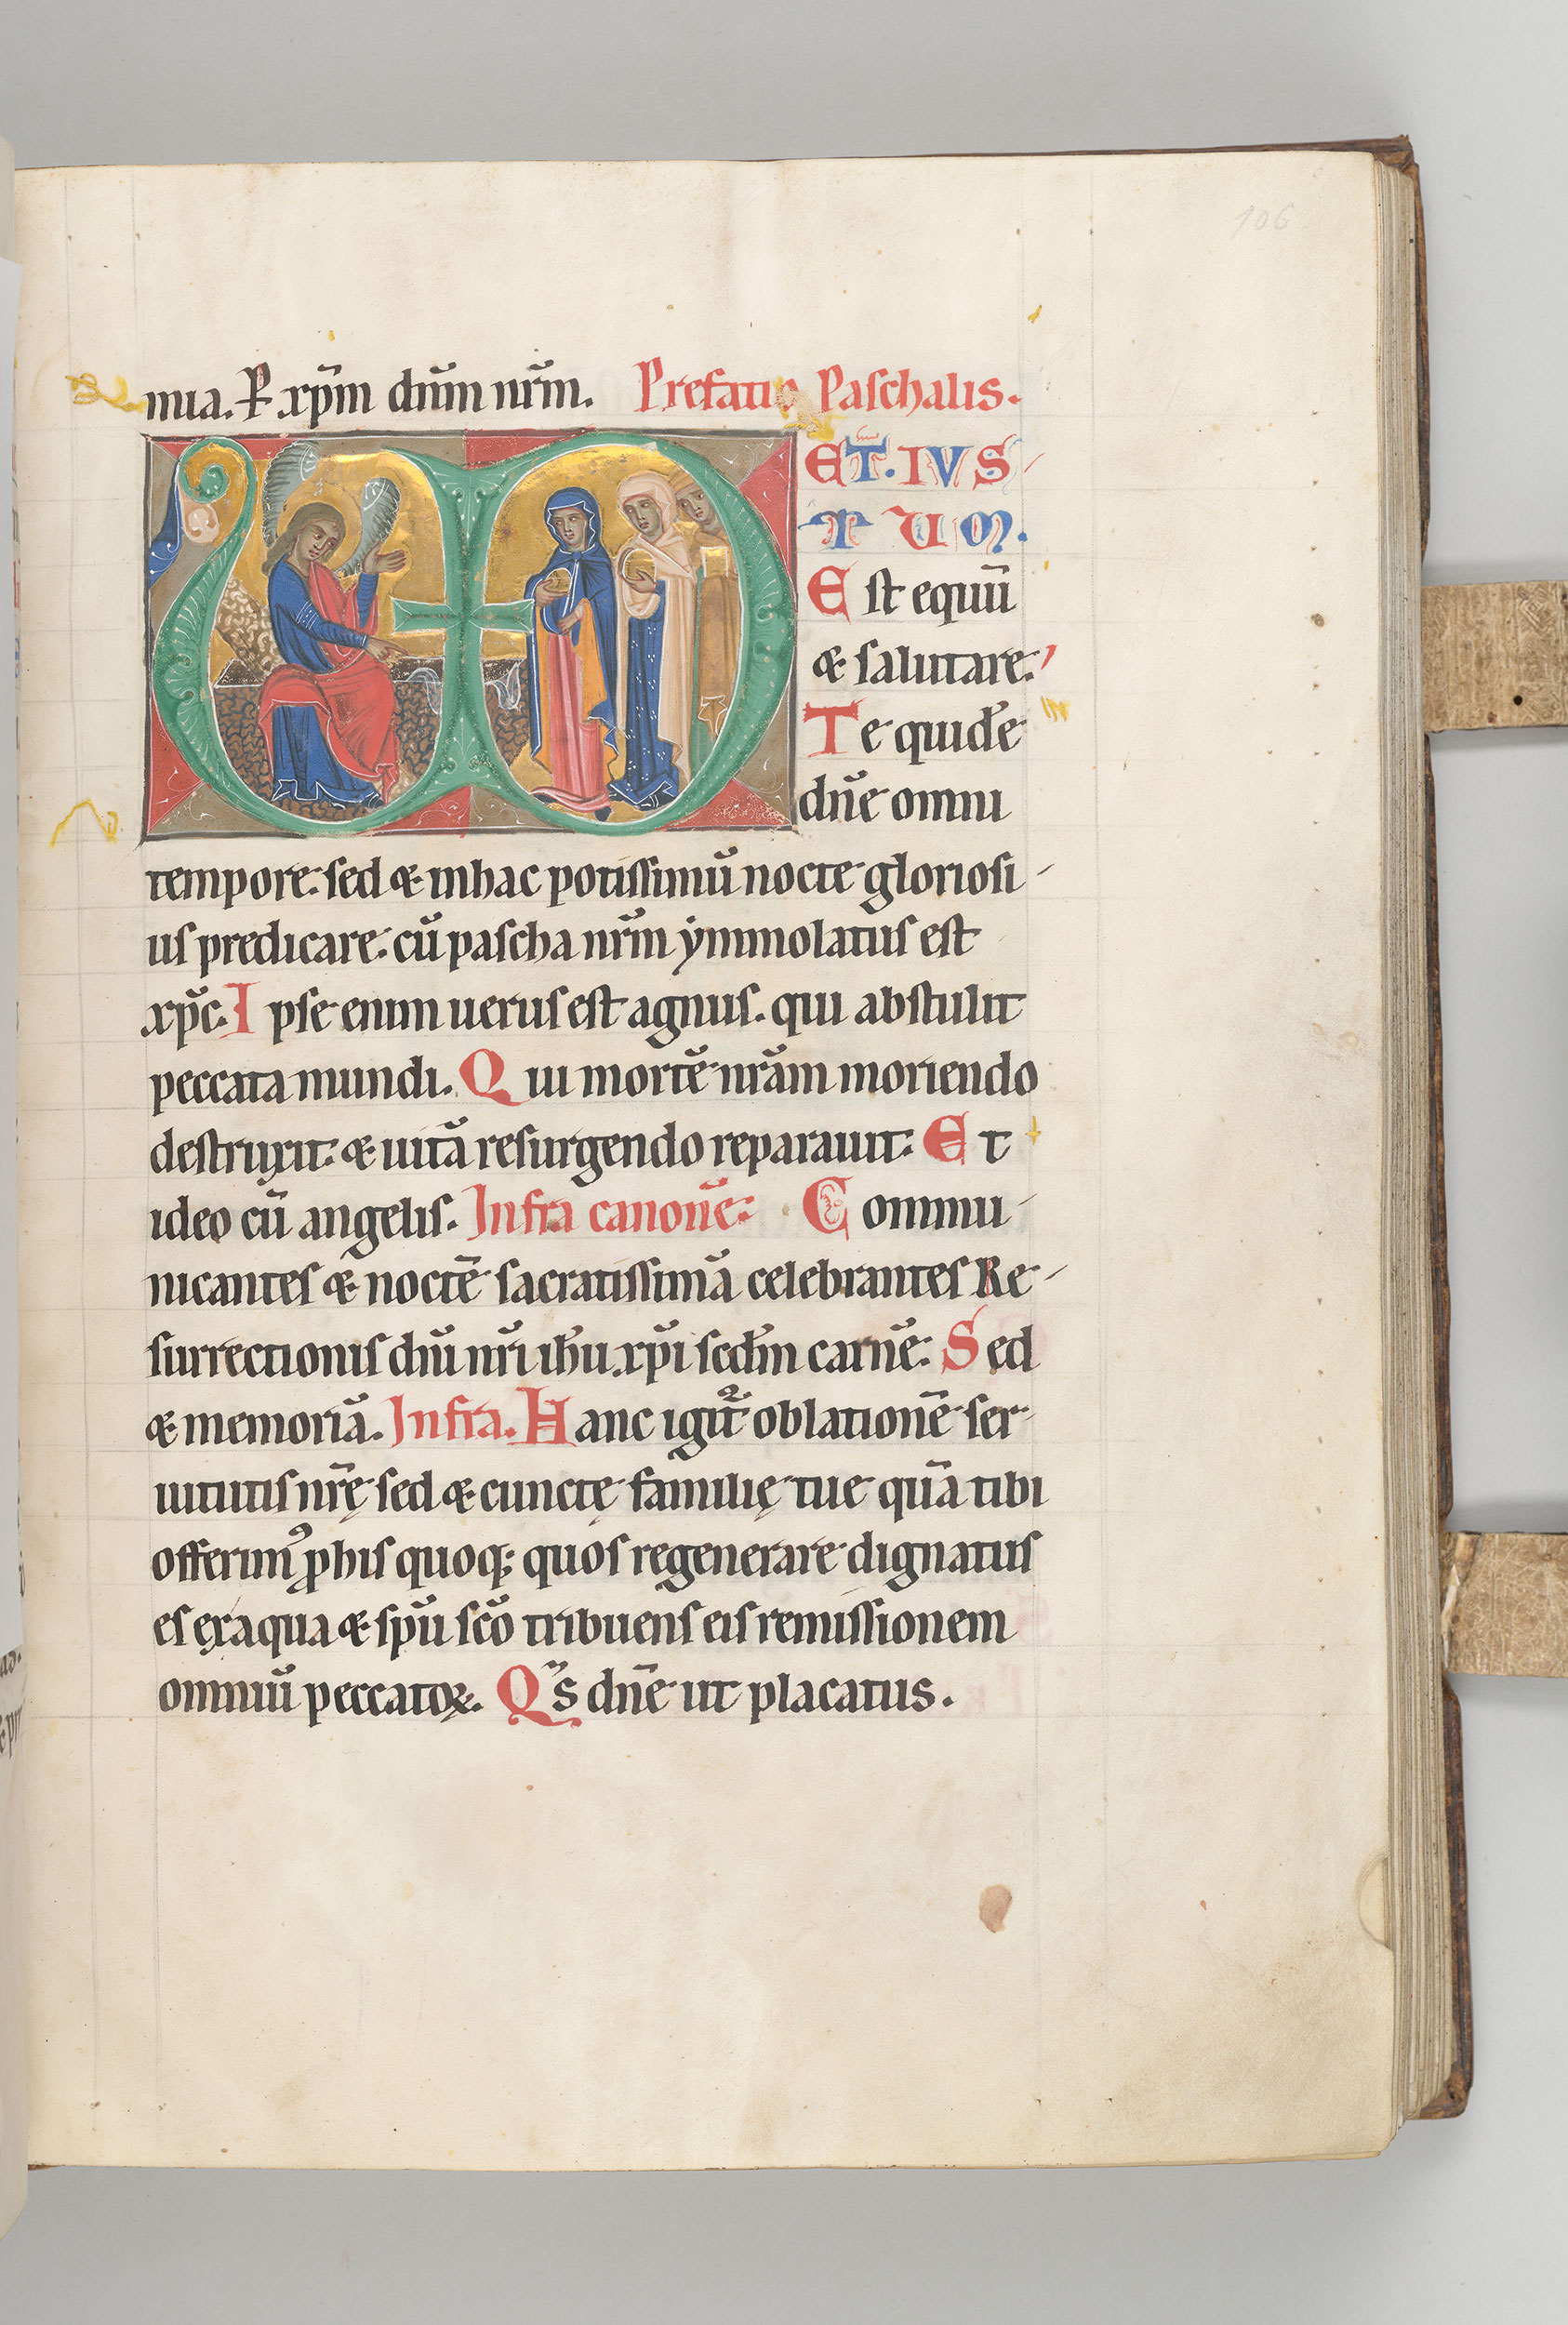 106
mia. P xp̄m dn̄m nr̄m. Prefatio Paschalis.
VD ET. IUS
TUM.
Est equū
& salutare.
Te quidē
dn̄e omni
tempore. sed & inhac potissimū nocte gloriosi
us predicare. cū pascha nr̄m ẏmmolatus est
xp̄c. Ipse enim uerus est agnus. qui abstulit
peccata mundi. Qui mortē nr̄am moriendo
destruxit. & uitā resurgendo reparauit. Et
ideo cū angelis. Infra canonē. Commu
nicantes & noctē sacratissimā celebrantes Re
surrectionis dn̄i nr̄i ih̄u xp̄i scd̄m carnē. Sed
& memoriā. Infra. Hanc igit̄ oblationē ser
uitutis nr̄ę sed & cunctę familię tue quā tibi
offerim᾿ ꝓ his quoq; quos regenerare dignatus
es ex aqua & sp̄u sc̄o tribuens eis remissionem
omniū peccatoꝝ. Qs dn̄e ut placatus.